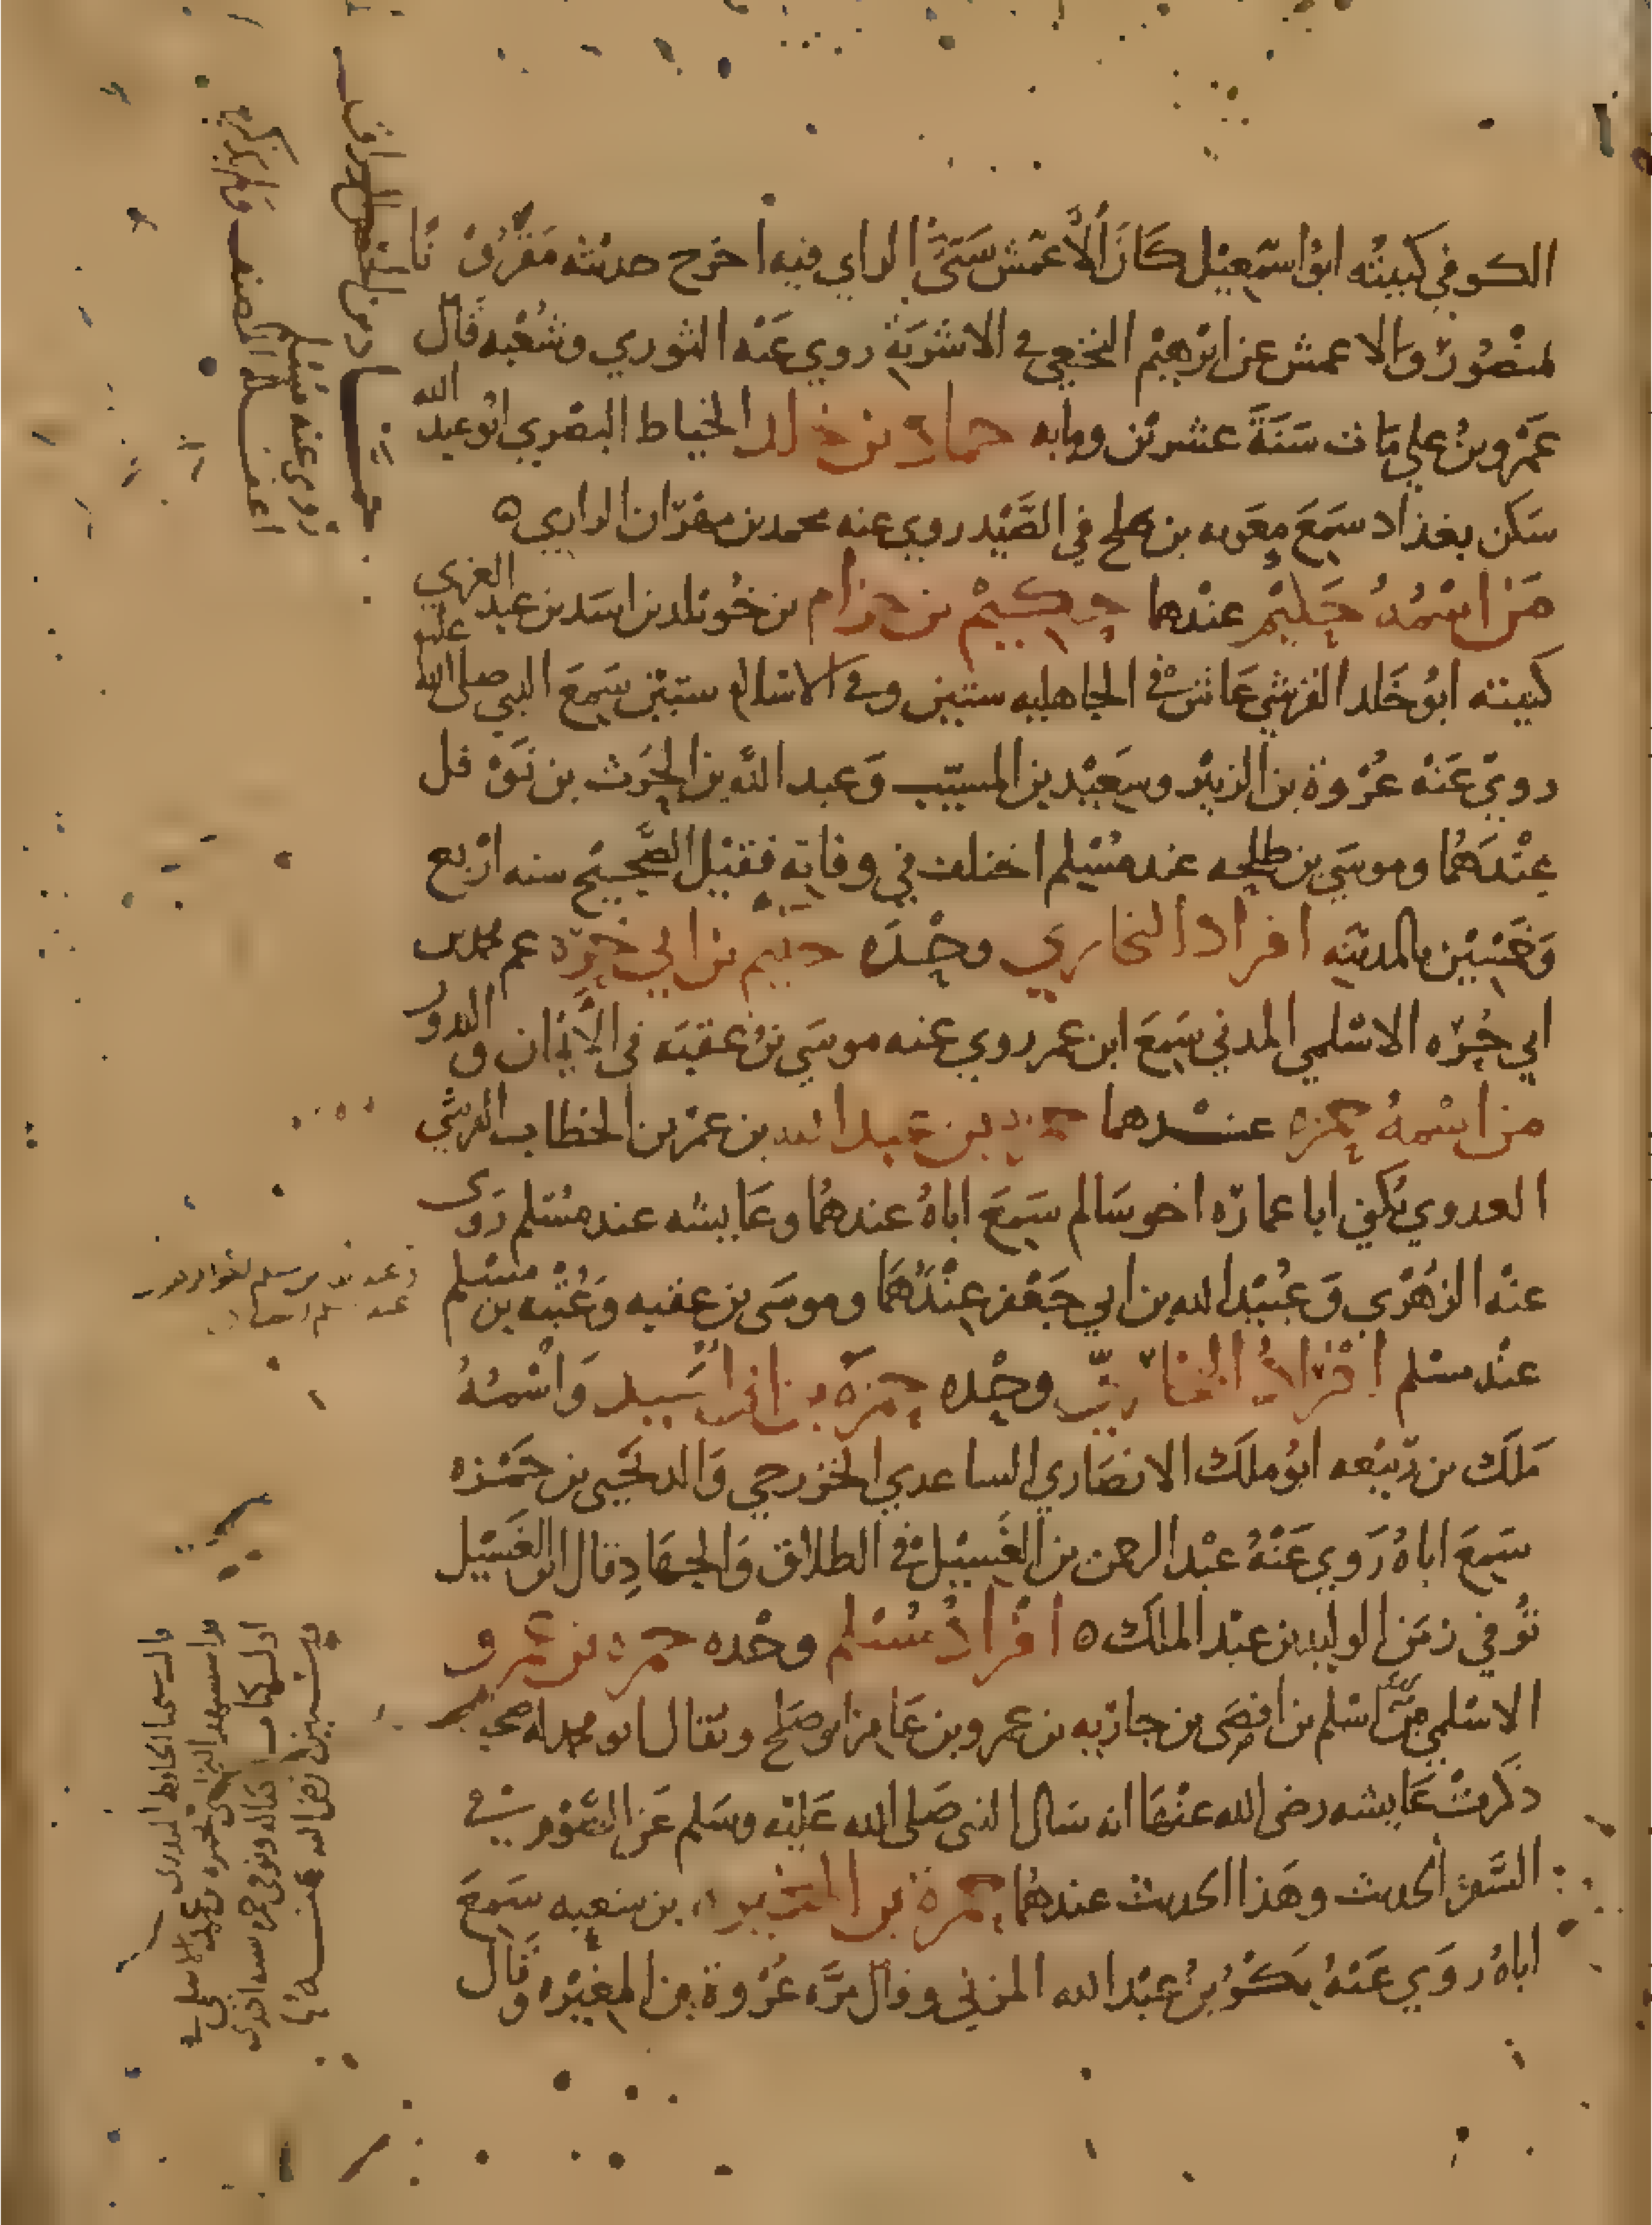 الكوفي كنيته ابو اسمعيل كان الاعمش سيئ الراي فيه اخرج حديثه مقرونا
لمنصور والاعمش عن ابرهيم النخعي في الاشربة روي عنه الثوري وشعبه قال
عمرو بن علي مات سنة عشرين ومايه حماد بن خلد الخياط البصري ابو عبد الله
سكن بغداد سمع معويه بن صلح في الصيد روي عنه محمد بن مهران الرازي ه
من اسمه حكيم عندهما حكيم بن حزام بن خويلد بن اسد بن عبد العزي
كنيته ابو خلد القرشي عاش في الجاهليه ستين وفي الاسلام ستين سمع النبي صلى الله عليه
روي عنه عروة بن الزبير وسعيد بن المسيب وعبد الله بن الحرث بن نوفل
عندهما وموسي بن طلحه عند مسلم اختلف في وفاته فقيل الصحيح سنه اربع
وخمسين بالمدينه افراد البخاري وحده حكيم بن ابي حره عم محمد بن
ابي حره الاسلمي المدني سمع ابن عمر روي عنه موسي بن عقبه في الايمان والنذور
من اسمه حمزه عندهما حمزه بن عبد الله بن عمر بن الخطاب القرشي
العدوي يكني ابا عماره اخو سالم سمع اباه عندهما وعايشه عند مسلم روى
عنه الزهري وعبيد الله بن ابي جعفر عندهما وموسي بن عقبه وعتبه بن مسلم
عند مسلم افراد البخاري وحده حمزه بن ابي اسيد واسمه
ملك بن ربيعه ابو ملك الانصاري الساعدي الخزرجي والد يحيي بن حمزه
سمع اباه روي عنه عبد الرحمن بن الغسيل في الطلاق والجهاد قال ابن الغسيل
توفي زمن الوليد بن عبد الملك ه افراد مسلم وحده حمزه بن عمرو
الاسلمي من اسلم بن افصى بن حارثه بن عمرو بن عامر ابو صلح ويقال ابو محمد له صحبه
ذكرت عايشه رضى الله عنها انه سال النبي صلى الله عليه وسلم عن الصوم في
السفر الحديث وهذا الحديث عندهما حمزة بن المغيره بن شعبه سمع
اباه روي عنه بكر بن عبد الله المزني وقال مره عروة بن المغيره وقال